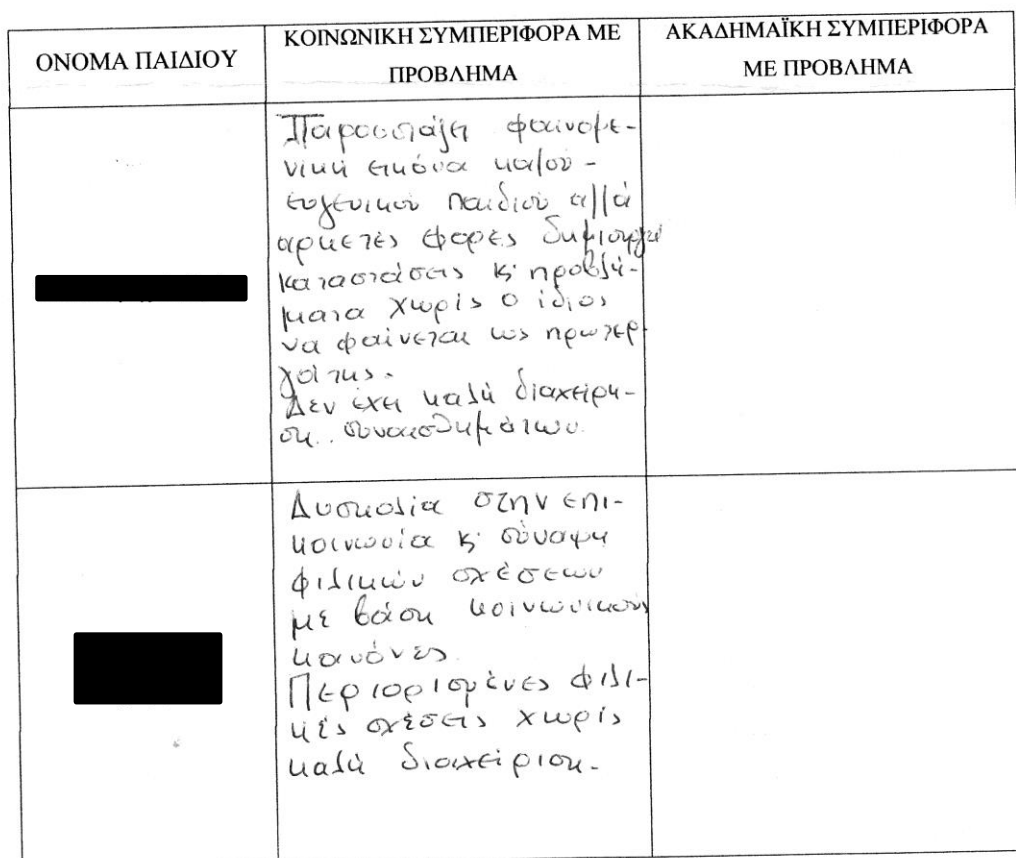 ΟΝΟΜΑ ΠΑΙΔΙΟΥ
ΚΟΙΝΩΝΙΚΗ ΣΥΜΠΕΡΙΦΟΡΑ ΜΕ
ΠΡΟΒΛΗΜΑ
ΑΚΑΔΗΜΑΪΚΗ ΣΥΜΠΕΡΙΦΟΡΑ
ΜΕ ΠΡΟΒΛΗΜΑ
Παρουσιάζει φαινομε-
νική εικόνα καλού -
ευγενικού παιδιού αλλά
αρκετές φορές δημιουργεί
καταστάσεις κ' προβλή-
ματα χωρίς ο ίδιος
να φαίνεται ως πρωτερ-
γάτης.
Δεν έχει καλή διαχείρη-
ση συναισθημάτων.
Δυσκολία στην επι-
κοινωνία κ' σύναψη
φιλικών σχέσεων
με βάση κοινωνικούς
κανόνες.
Περιορισμένες φιλι-
κές σχέσεις χωρίς
καλή διαχείριση.